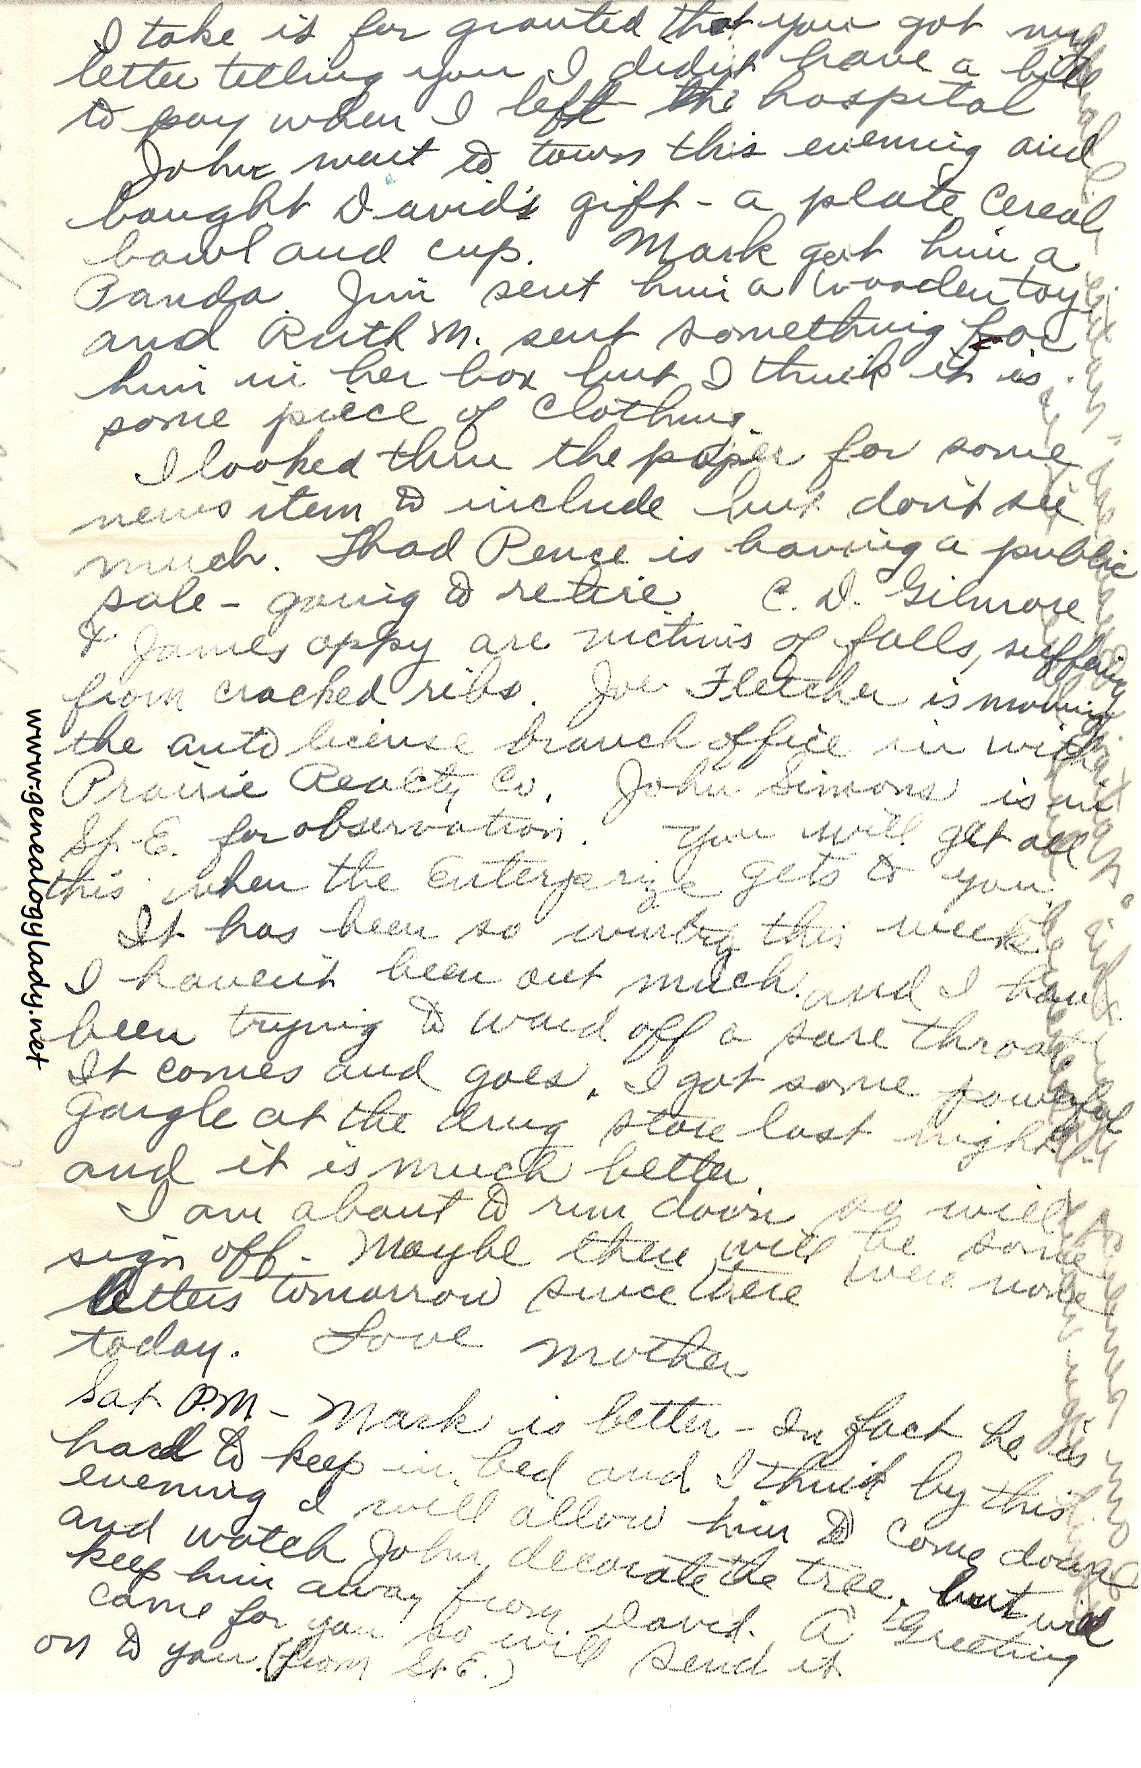 I take it for granted that you got my
letter telling you I didn't have a bill
to pay when I left the hospital
John went to town this evening and
bought David's gift - a plate, cereal
bowl and cup. Mark got him a
Panda. Jim sent him a wooden toy
and Ruth M. sent something for
him in her box but I think it is
some piece of clothing.
I looked thru the paper for some
news item to include but don't see
much. Thad Pence is having a public
sale - going to retire. C. D. Gilmore
& James Oppy are victims of falls, suffering
from cracked ribs. Joe Fletcher is moving
the auto license branch office in with
Prairie Realty Co. John Simons is in
St. E. for observation. You will get all
this when the Enterprize gets to you.
It has been so windy this week
I haven't been out much. and I have
been trying to ward off a sore throat
It comes and goes. I got some powerful
Gargle at the drug store last night
and it is much better.
I am about to run down so will
sign off. Maybe there will be some
letters tomorrow since there were none
today. Love Mother
Sat P.M. - Mark is better - In fact he is
hard to keep in bed and I think by this
evening I will allow him to come down
and watch John decorate the tree, but will
keep him away from David. A Greeting
came for you so will send it
on to you. (from St. E.)
www.genealogylady.net